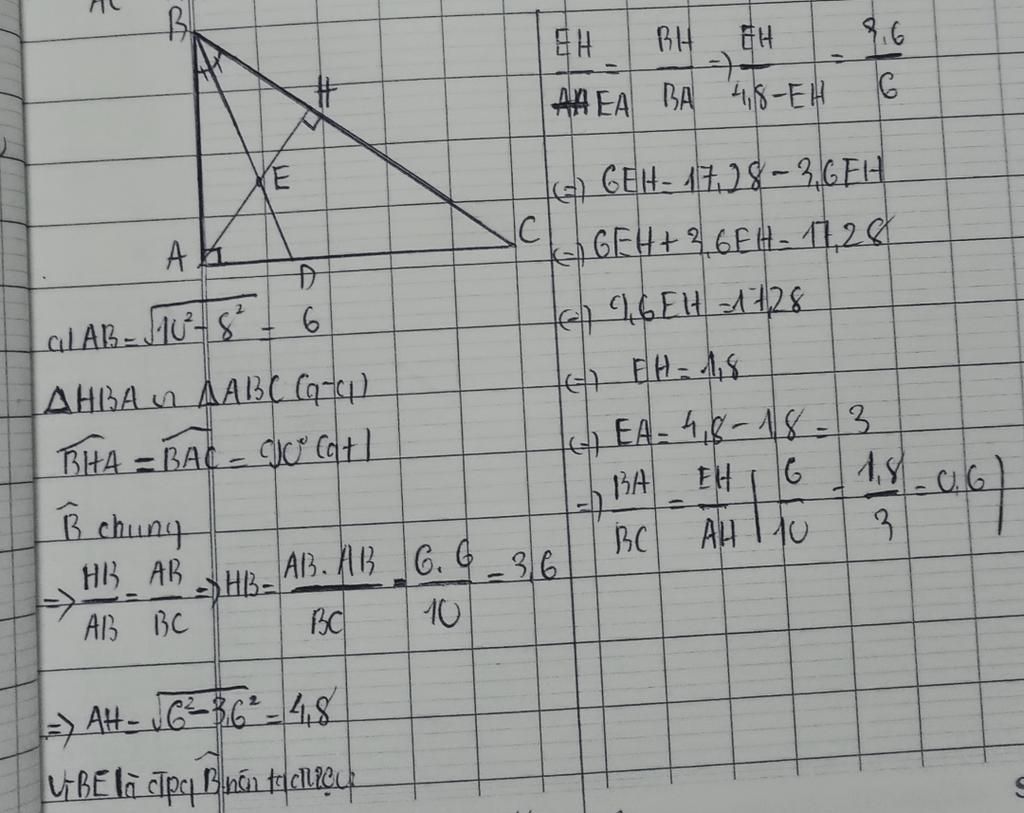 AC
B
H
E
A
D
C
a) AB = √10² - 8² = 6
ΔHBA ∽ ΔABC (g-g)
BHA = BAC = 90° (gt)
B̂ chung
=> HB/AB = AB/BC => HB = AB.AB/BC = 6.6/10 = 3,6
=> AH = √6² - 3,6² = 4,8
Vì BE là đpg B̂ nên ta được
EH/EA = BH/BA => EH/4,8-EH = 3,6/6
(=) 6EH = 17,28 - 3,6EH
(=) 6EH + 3,6EH = 17,28
(=) 9,6EH = 17,28
(=) EH = 1,8
(=) EA = 4,8 - 1,8 = 3
=> BA/BC = EH/AH (6/10 = 1,8/3 = 0,6)